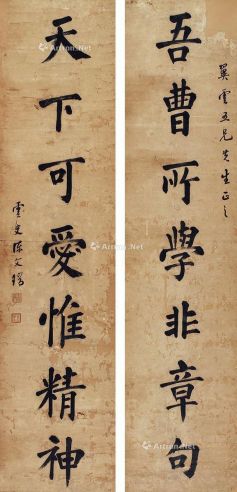 翼雲五兄先生正之
吾曹所學非章句
天下可愛惟精神
雲史陳文騄